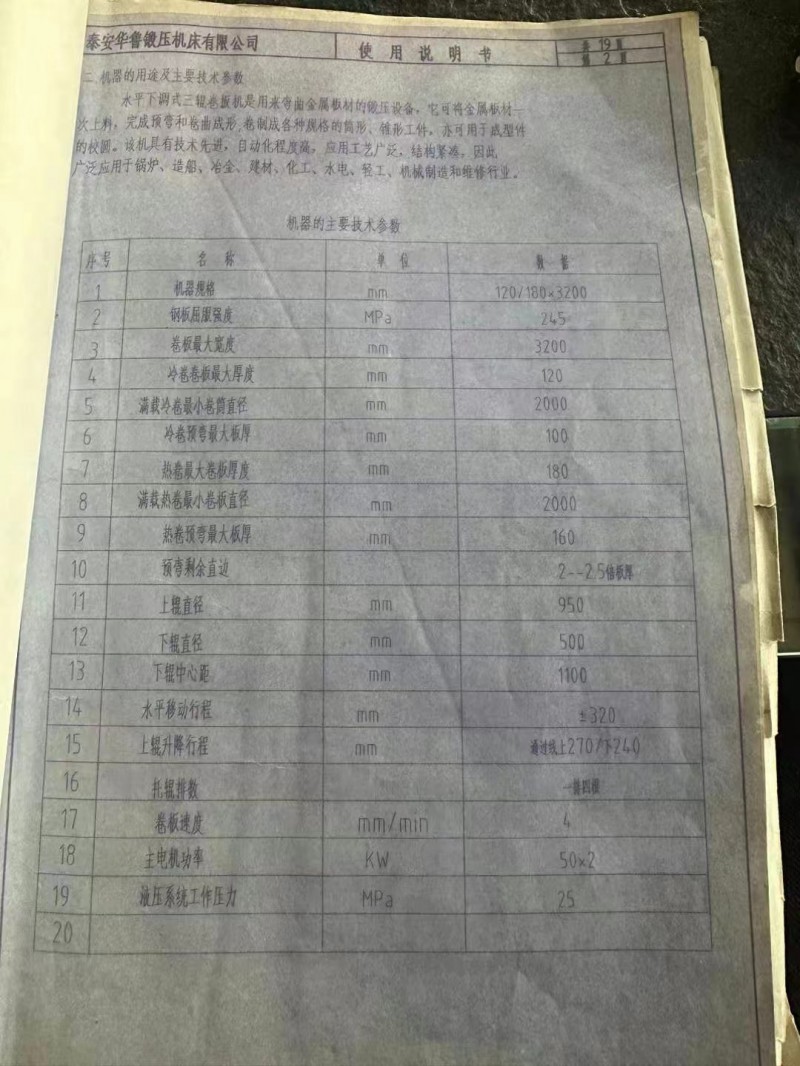 泰安华鲁锻压机床有限公司
使用说明书
共 19 页
第 2 页
二 机器的用途及主要技术参数
水平下调式三辊卷板机是用来弯曲金属板材的锻压设备，它可将金属板材一
次上料，完成预弯和卷曲成形，卷制成各种规格的筒形、锥形工件，亦可用于成型件
的校圆。该机具有技术先进，自动化程度高，应用工艺广泛，结构紧凑，因此
广泛应用于锅炉、造船、冶金、建材、化工、水电、轻工、机械制造和维修行业。
机器的主要技术参数
序号 名称 单位 数据
1 机器规格 mm 120/180×3200
2 钢板屈服强度 MPa 245
3 卷板最大宽度 mm 3200
4 冷卷卷板最大厚度 mm 120
5 满载冷卷最小卷筒直径 mm 2000
6 冷卷预弯最大板厚 mm 100
7 热卷最大卷板厚度 mm 180
8 满载热卷最小卷板直径 mm 2000
9 热卷预弯最大板厚 mm 160
10 预弯剩余直边 2--2.5倍板厚
11 上辊直径 mm 950
12 下辊直径 mm 500
13 下辊中心距 mm 1100
14 水平移动行程 mm ±320
15 上辊升降行程 mm 通过线上270/下240
16 托辊排数 一排四根
17 卷板速度 mm/min 4
18 主电机功率 KW 50×2
19 液压系统工作压力 MPa 25
20